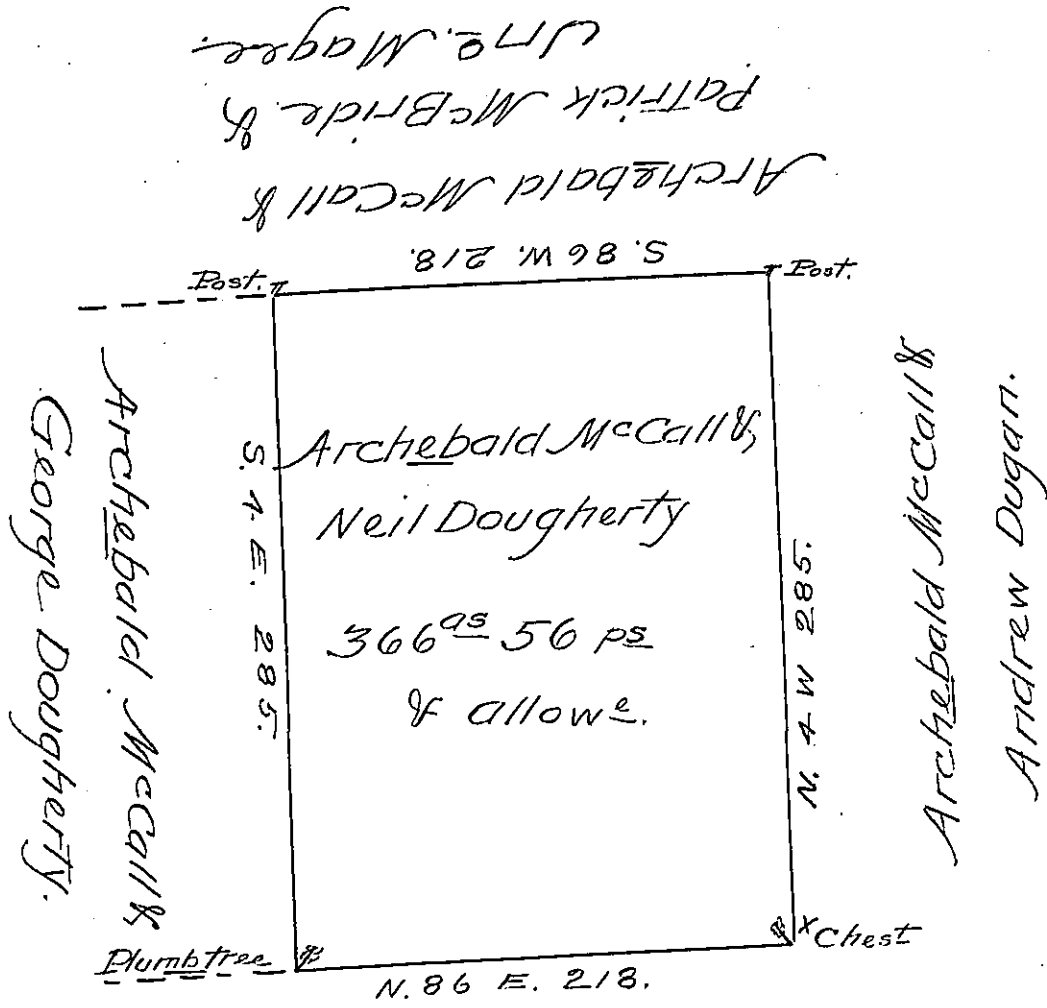 Jno. Magee.
Patrick McBride &
Archebald McCall &
S. 86 W. 218.
Post.
Post.
Archebald McCall &
George Dougherty.
S. 4 E. 285.
Archebald McCall &
Neil Dougherty
366as 56 ps
& allowe.
N. 4 W 285.
Archebald McCall &
Andrew Dugan.
Plumbtree
X Chest
N. 86 E. 218.